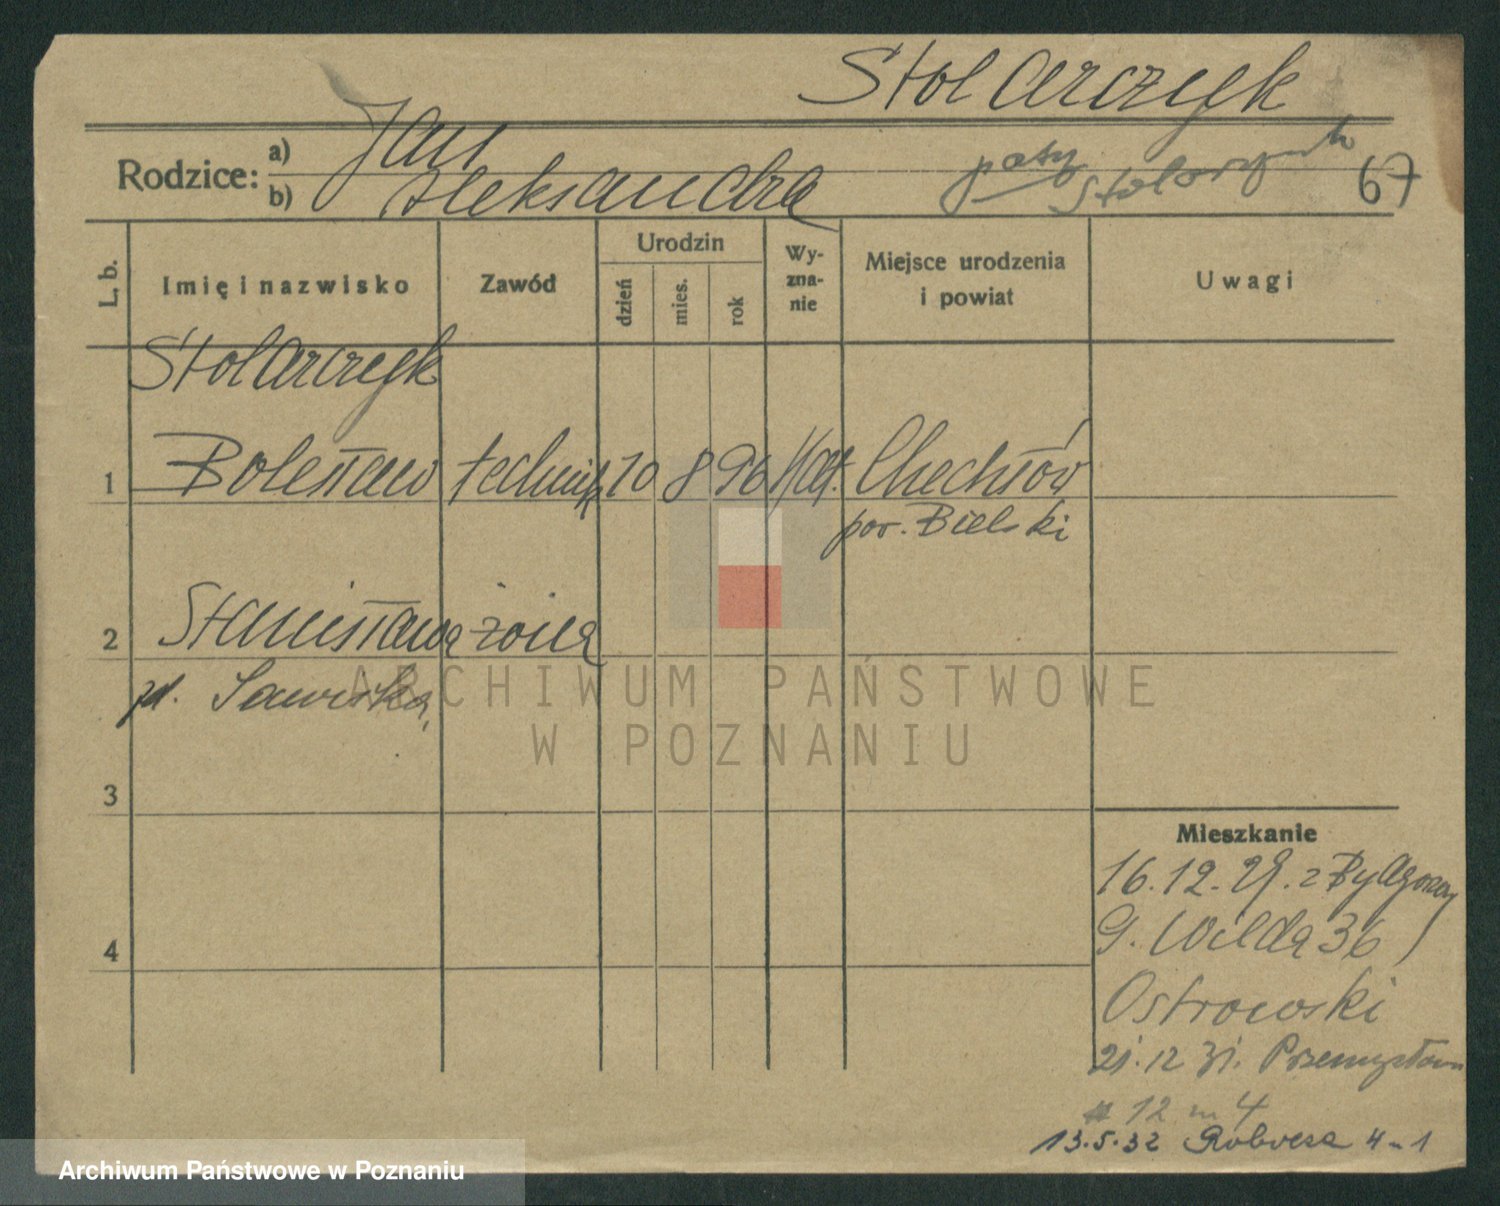 Stolarczyk
Rodzice: a) Jan
b) Aleksandra
patrz Stolarzyk 67
L. b. Imię i nazwisko Zawód Urodzin dzień mies. rok Wyznanie Miejsce urodzenia i powiat Uwagi
Stolarczyk
1 Bolesław technik 10 8 96 kat. Chechłów
pow. Bielski
2 Stanisława żona
zd. Sawicka
3
Mieszkanie
16.12.29. z Bydgoszczy
G. Wilda 36
4
Ostrowski
21.12 31. Przemysłowa
12 m 4
13.5.32 4-1
ARCHIWUM PAŃSTWOWE
W POZNANIU
Archiwum Państwowe w Poznaniu